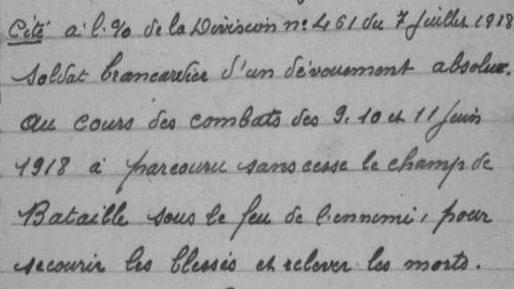 Cité à l'% de la Division n° 461 du 7 juillet 1918
Soldat brancardier d'un dévouement absolue.
au cours des combats des 9, 10 et 11 juin
1918 à parcouru sans cesse le champ de
Bataille sous le feu de l'ennemi, pour
secourir les blessés et relever les morts.